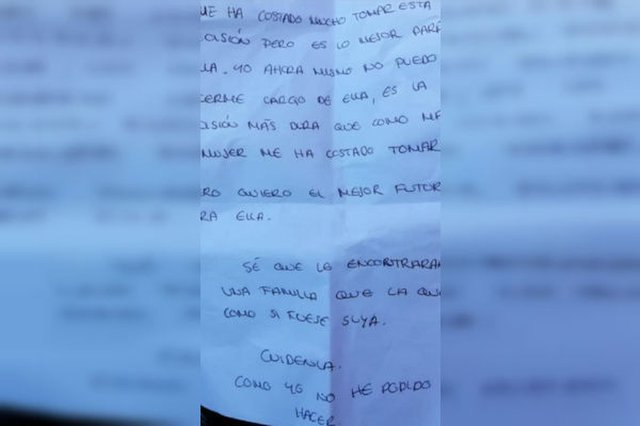 ME HA COSTADO MUCHO TOMAR ESTA
CISIÓN PERO ES LO MEJOR PARA
LLA. YO AHORA MISMO NO PUEDO
CERME CARGO DE ELLA, ES LA
CISIÓN MÁS DURA QUE COMO MA
MUJER ME HA COSTADO TOMAR
RO QUIERO EL MEJOR FUTUR
RA ELLA.
SÉ QUE LE ENCONTRARAN
UNA FAMILIA QUE LA QUI
COMO SI FUESE SUYA.
CUIDENLA.
COMO YO NO HE PODIDO
HACER